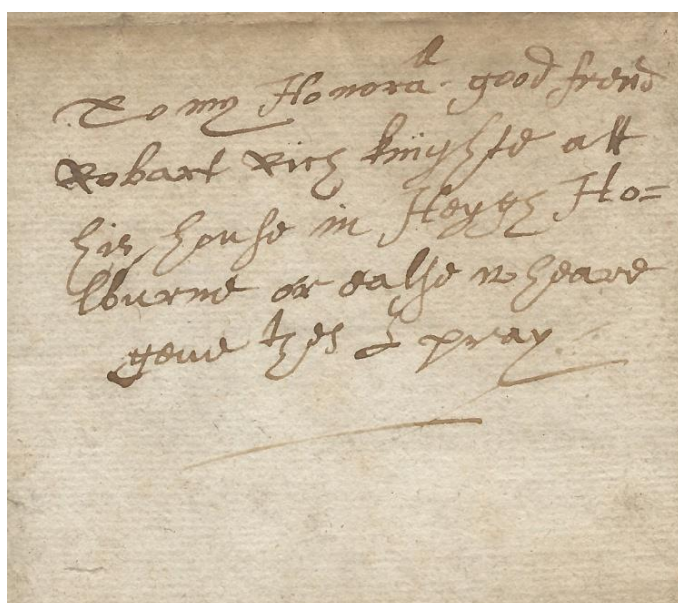 To my Honorall good frend
Robart Rich knighte att
his house in Heygh Ho=
lburne or ealse wheare
geue thes I pray